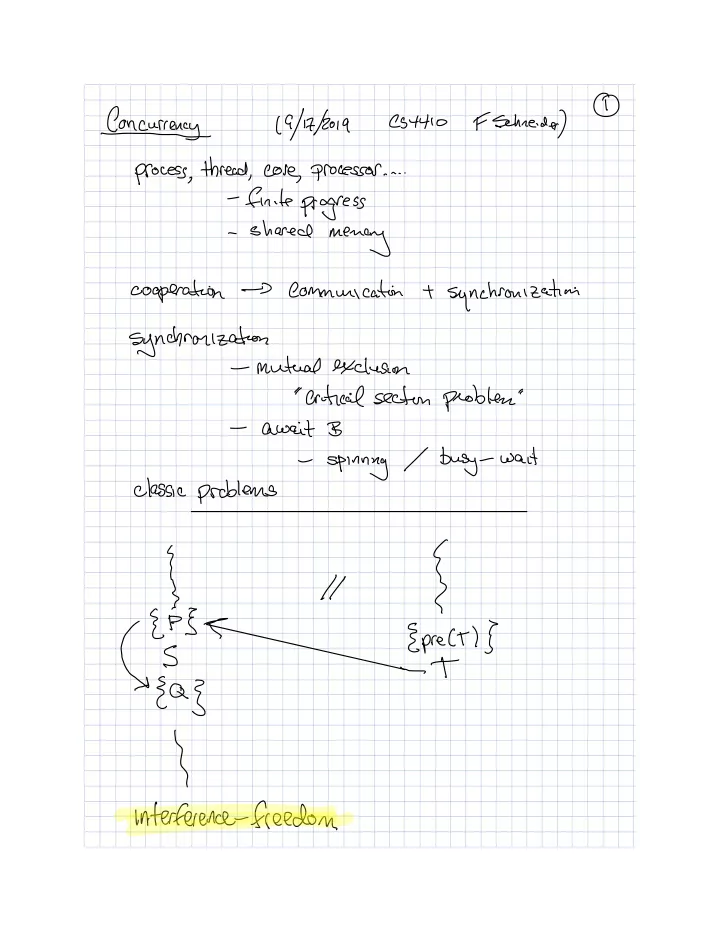 ①
Concurrency (9/17/2019 CS4410 F Schneider)
process, thread, core, processor....
- finite progress
- shared memory
cooperation → Communication + synchronization
synchronization
- mutual exclusion
"critical section problem"
- await B
- spinning / busy-wait
classic problems
//
{P}
{pre(T)}
S
T
{Q}
interference-freedom